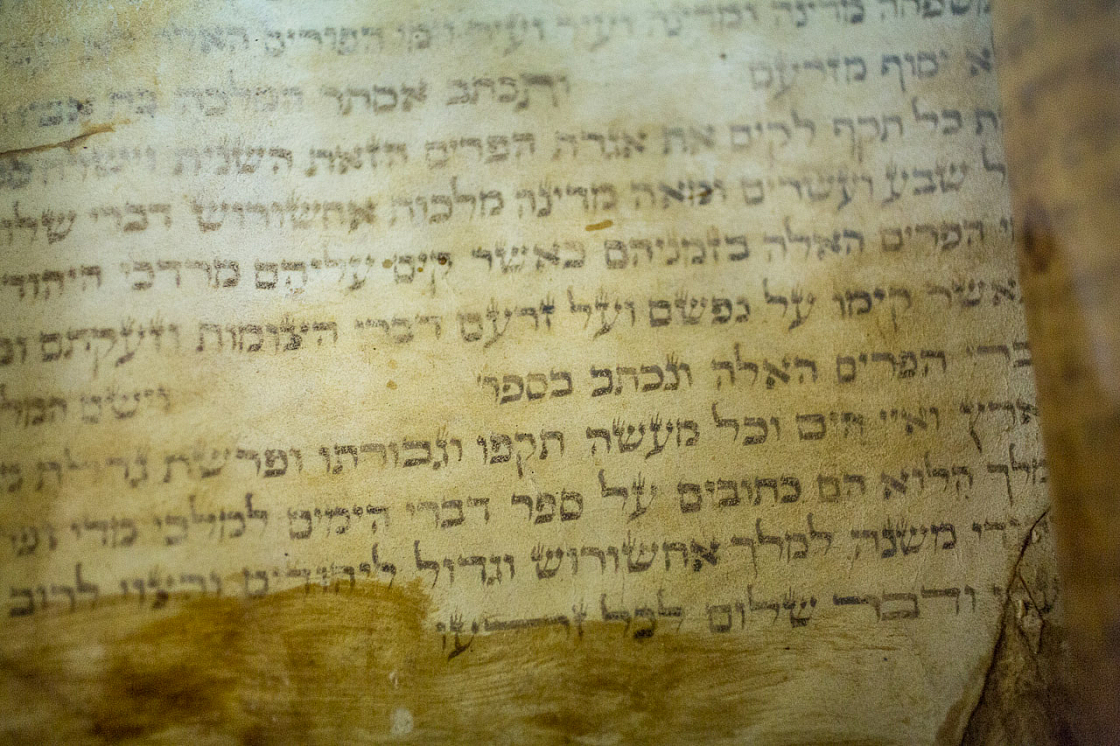 משפחה מדינה ומדינה ועיר ועיר וימי הפורים האלה
יסוף מזרעם ותכתב אסתר המלכה בת
כל תקף לקים את אגרת הפרים הזאת השנית וישלח
שבע ועשרים ומאה מדינה מלכות אחשורוש דברי
הפרים האלה בזמניהם כאשר קים עליהם מרדכי
קימו על נפשם ועל זרעם דברי הצומות וזעקתם
הפרים האלה ונכתב בספר וישם
ואיי הים וכל מעשה תקפו וגבורתו ופרשת גדלת
הלוא הם כתובים על ספר דברי הימים למלכי מדי
משנה למלך אחשורוש וגדול ליהודים ורצוי לרוב
ודבר שלום לכל זרעו